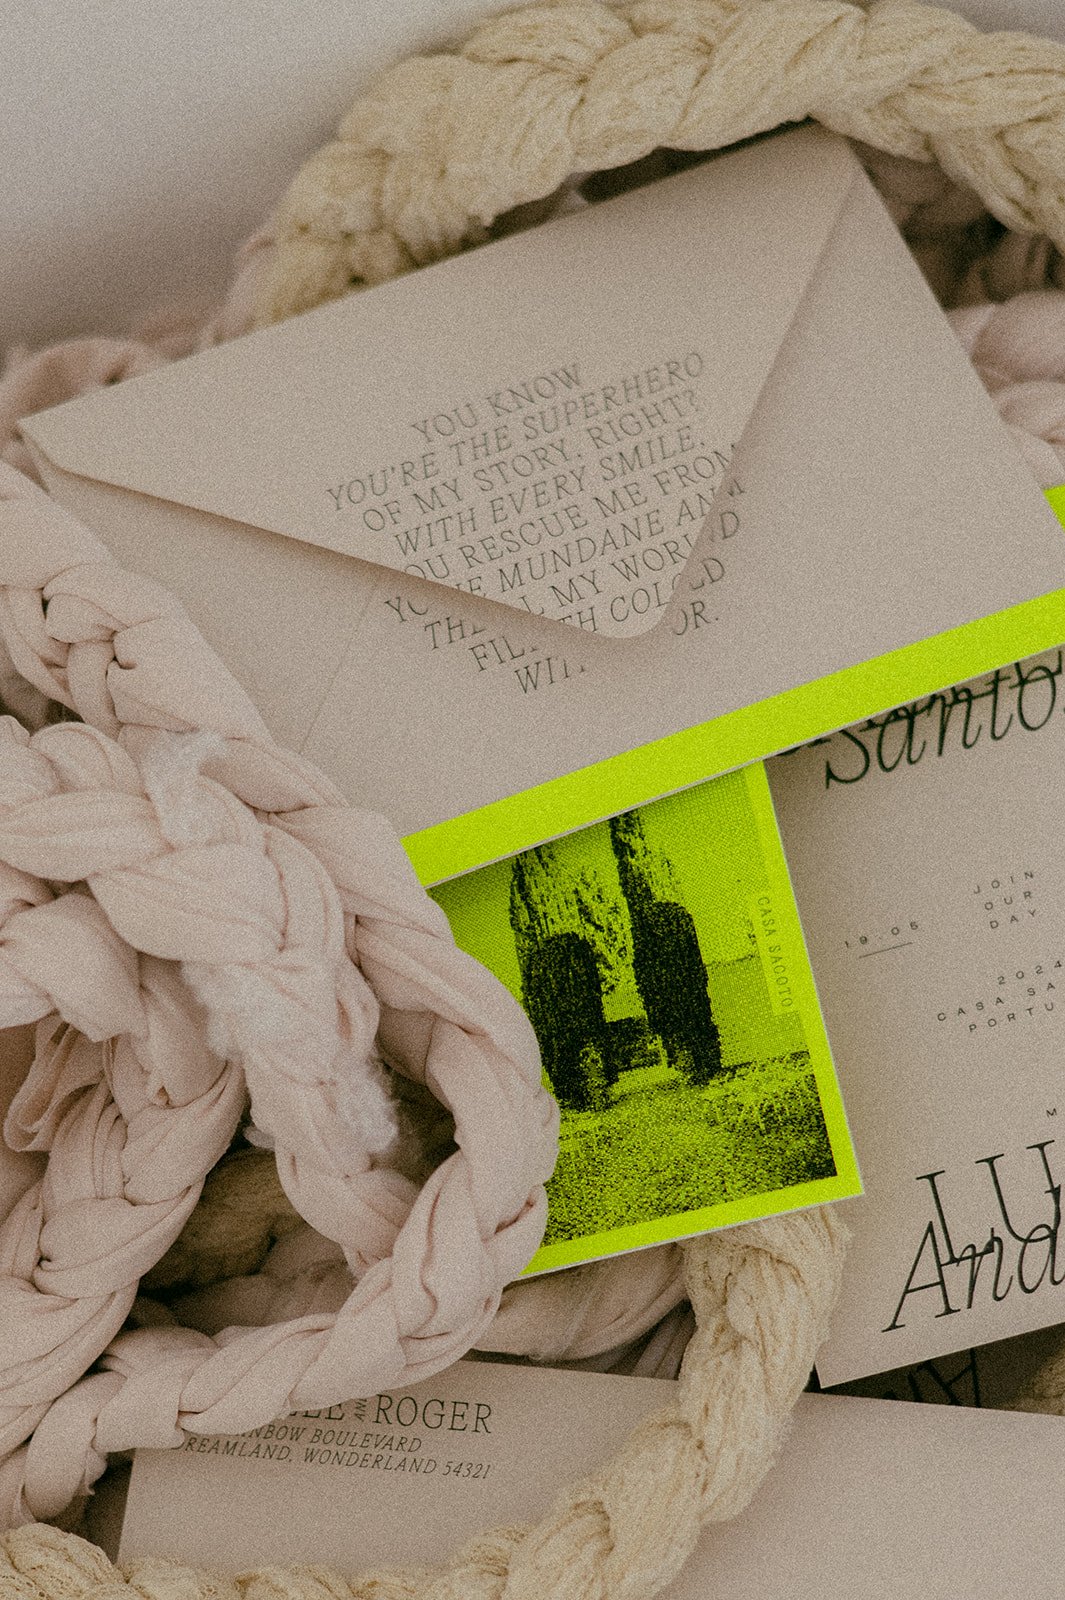 YOU KNOW
YOU'RE THE SUPERHERO
OF MY STORY, RIGHT?
WITH EVERY SMILE,
YOU RESCUE ME FROM
THE MUNDANE AND
FILL MY WORLD
WITH COLOR.
Santo
CASA SACOTO
JOIN
OUR
DAY
19.05
2024
CASA SA
PORTU
M
LU
And
ROGER
NBOW BOULEVARD
DREAMLAND, WONDERLAND 54321